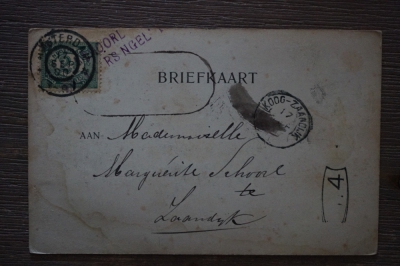 AMSTERDAM
BRIEFKAART
KOOG-ZAANDIJK
AAN Mademoiselle
Marguérite Schoorl
te
Zaandyk
4